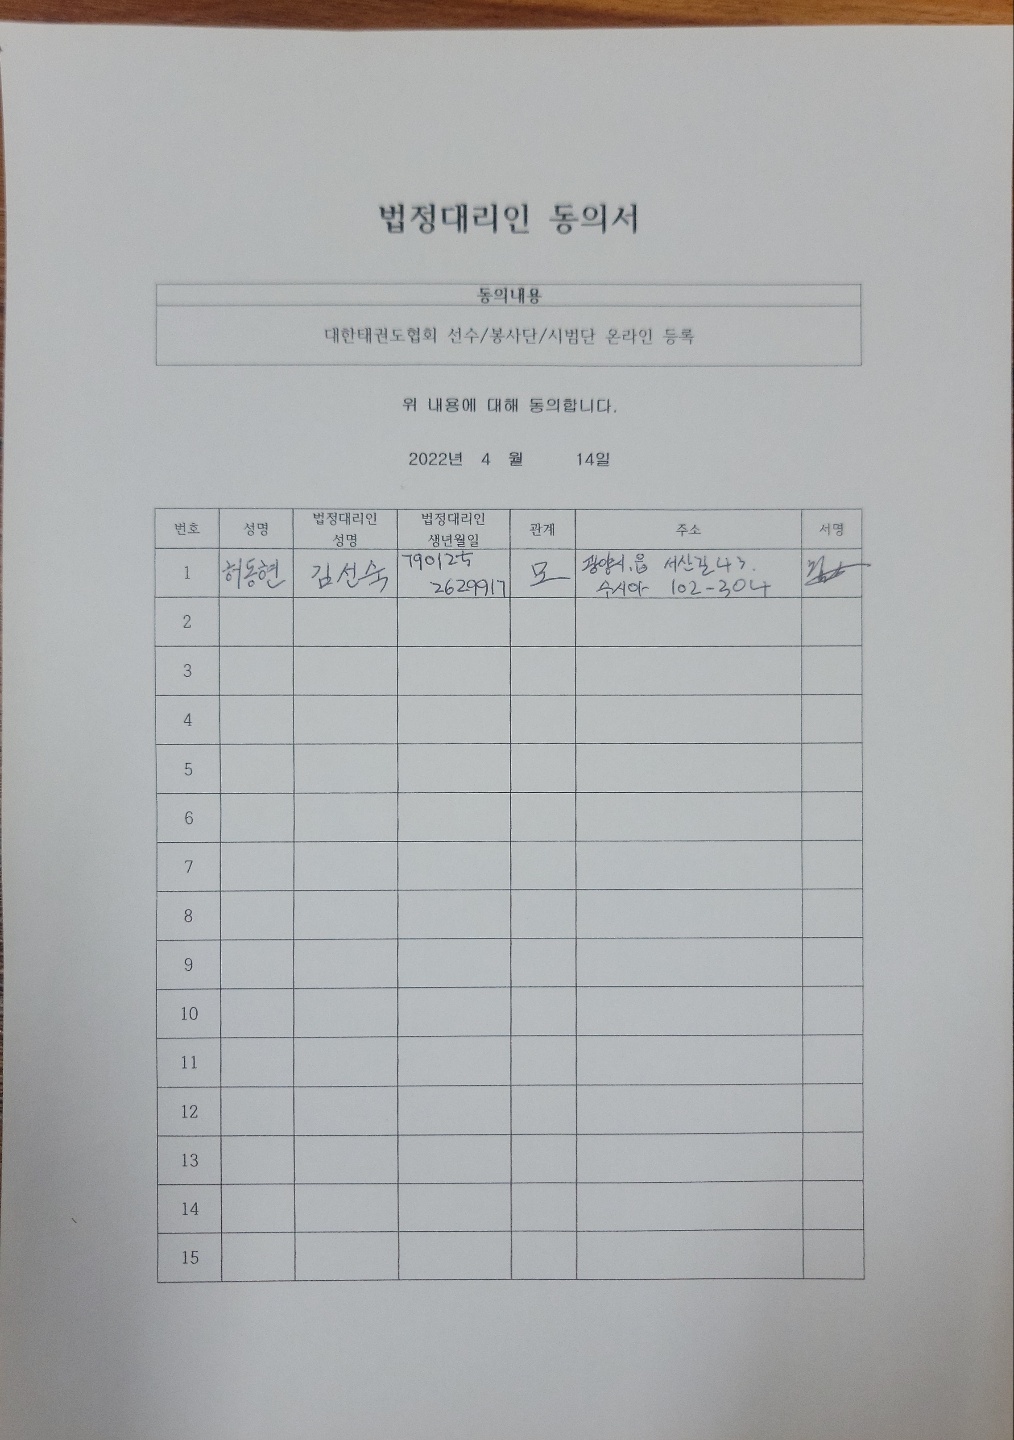 법정대리인 동의서
동의내용
대한태권도협회 선수/봉사단/시범단 온라인 등록
위 내용에 대해 동의합니다.
2022년 4 월 14일
번호 성명 법정대리인 성명 법정대리인 생년월일 관계 주소 서명
1 허동현 김선숙 790125 모 광양시.읍 서산길 43.
2629917 수시아 102-304
2
3
4
5
6
7
8
9
10
11
12
13
14
15